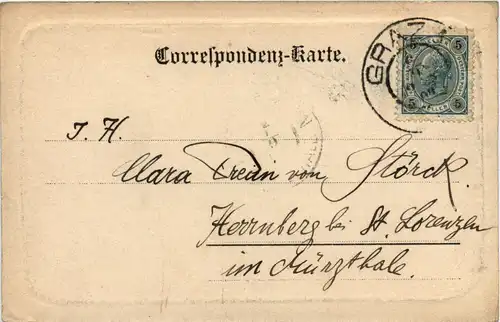 Correspondenz-Karte.
GRAZ
5 5
HELLER
5 5
I. H.
Clara von Störck.
Herrnberg bei St. Lorenzen
im Mürzthale.